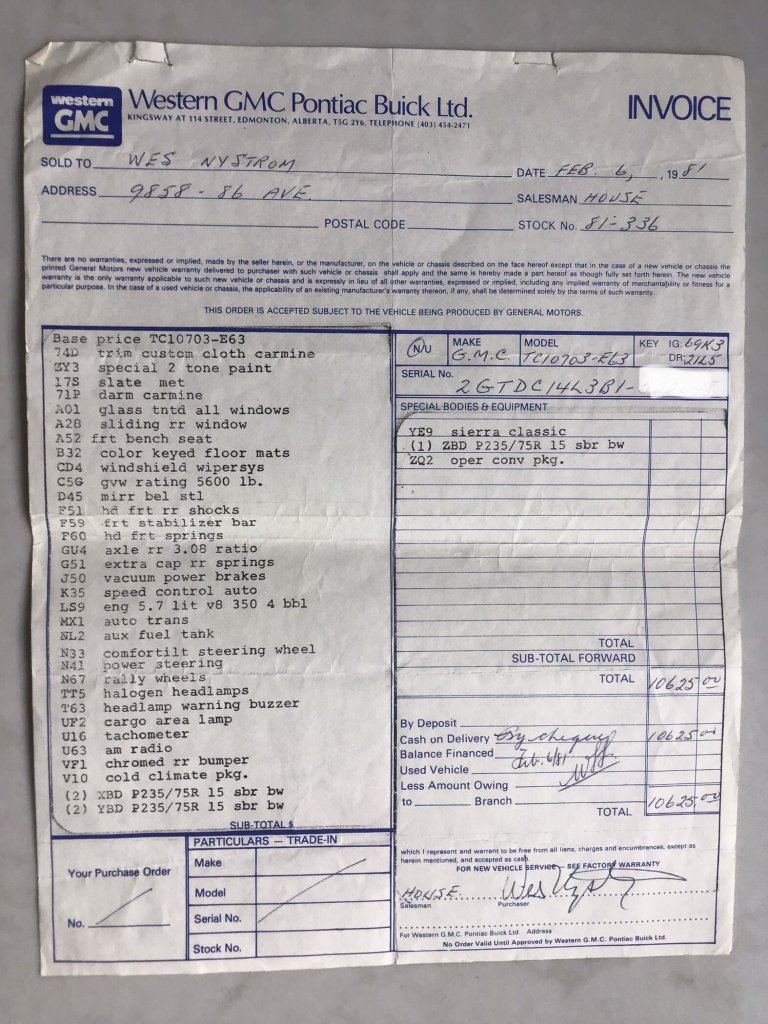 western GMC
Western GMC Pontiac Buick Ltd.
INVOICE
KINGSWAY AT 114 STREET, EDMONTON, ALBERTA, T5G 2Y6, TELEPHONE (403) 454-2471
SOLD TO WES NYSTROM
DATE FEB. 6, , 19 81
ADDRESS 9858 - 86 AVE.
SALESMAN HOUSE
POSTAL CODE
STOCK No. 81-336
There are no warranties, expressed or implied, made by the seller herein, or the manufacturer, on the vehicle or chassis described on the face hereof except that in the case of a new vehicle or chassis the
printed General Motors new vehicle warranty delivered to purchaser with such vehicle or chassis shall apply and the same is hereby made a part hereof as though fully set forth herein. The new vehicle
warranty is the only warranty applicable to such new vehicle or chassis and is expressly in lieu of all other warranties, expressed or implied, including any implied warranty of merchantability or fitness for a
particular purpose. In the case of a used vehicle or chassis, the applicability of an existing manufacturer's warranty thereon, if any, shall be determined solely by the terms of such warranty.
THIS ORDER IS ACCEPTED SUBJECT TO THE VEHICLE BEING PRODUCED BY GENERAL MOTORS.
Base price TC10703-E63
74D trim custom cloth carmine
ZY3 special 2 tone paint
17S slate met
71P darm carmine
A01 glass tntd all windows
A28 sliding rr window
A52 frt bench seat
B32 color keyed floor mats
CD4 windshield wipersys
C5G gvw rating 5600 lb.
D45 mirr bel stl
F51 hd frt rr shocks
F59 frt stabilizer bar
F60 hd frt springs
GU4 axle rr 3.08 ratio
G51 extra cap rr springs
J50 vacuum power brakes
K35 speed control auto
LS9 eng 5.7 lit v8 350 4 bbl
MX1 auto trans
NL2 aux fuel tank
N33 comfortilt steering wheel
N41 power steering
N67 rally wheels
TT5 halogen headlamps
T63 headlamp warning buzzer
UF2 cargo area lamp
U16 tachometer
U63 am radio
VF1 chromed rr bumper
V10 cold climate pkg.
(2) XBD P235/75R 15 sbr bw
(2) YBD P235/75R 15 sbr bw
SUB-TOTAL $
N/U
MAKE G.M.C
MODEL TC10703-E63
KEY IG: 69K3
DR: 21L5
SERIAL No. 2GTDC14L3B1-
SPECIAL BODIES & EQUIPMENT
YE9 sierra classic
(1) ZBD P235/75R 15 sbr bw
ZQ2 oper conv pkg.
TOTAL
SUB-TOTAL FORWARD
TOTAL 10625.00
By Deposit
Cash on Delivery By cheque 10625.00
Balance Financed Feb. 6/81
Used Vehicle
Less Amount Owing
to Branch
TOTAL 10625.00
Your Purchase Order
No.
PARTICULARS — TRADE-IN
Make
Model
Serial No.
Stock No.
which I represent and warrant to be free from all liens, charges and encumbrances, except as
herein mentioned, and accepted as cash.
FOR NEW VEHICLE SERVICE — SEE FACTORY WARRANTY
HOUSE Wes Nystrom
Salesman Purchaser
For Western G.M.C. Pontiac Buick Ltd. Address
No Order Valid Until Approved by Western G.M.C. Pontiac Buick Ltd.